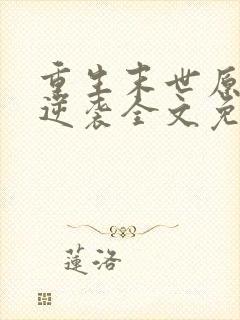 重生末世原
逆袭全文免
蓮洛